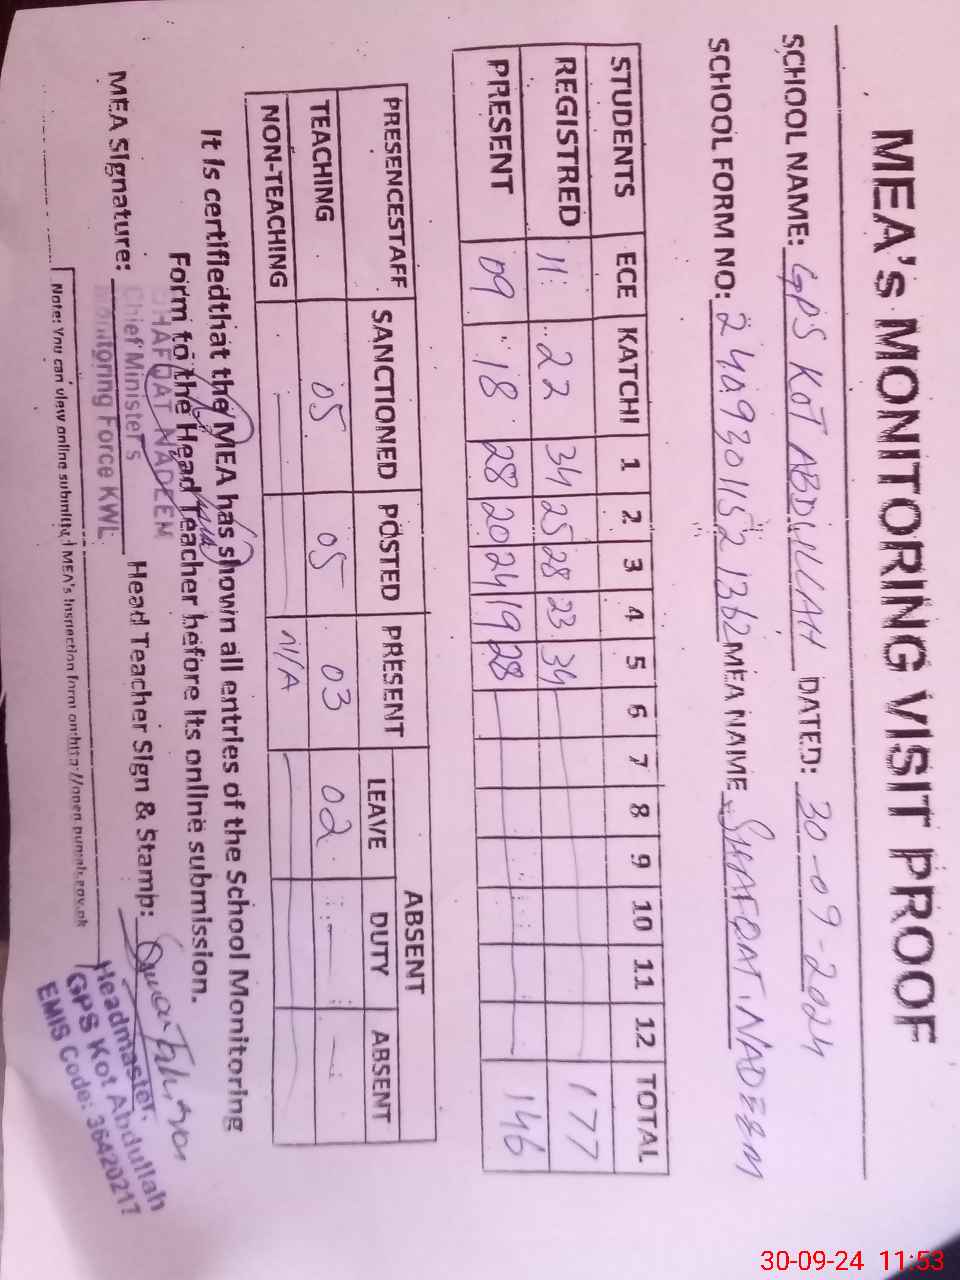 MEA's MONITORING VISIT PROOF
SCHOOL NAME: GPS KOT ABDULLAH DATED: 30-09-2024
SCHOOL FORM NO: MEA NAME SHAFQAT NADEEM
STUDENTS ECE KATCHI 1 2 3 4 5 6 7 8 9 10 11 12 TOTAL
REGISTRED 11 22 34 25 28 23 34 177
PRESENT 09 18 28 20 24 19 28 146
PRESENCESTAFF SANCTIONED POSTED PRESENT ABSENT
LEAVE DUTY ABSENT
TEACHING 05 05 03 02
NON-TEACHING N/A
It is certifiedthat the MEA has shown all entries of the School Monitoring
Form to the Head Teacher before its online submission.
SHAFQAT NADEEM
MEA Signature: Head Teacher Sign & Stamp:
Chief Minister's
Monitoring Force KWL
Headmaster,
GPS Kot Abdullah
EMIS Code: 36420217
Note: You can view online submitted MEA's Inspection form on:http://open.punjab.gov.pk
30-09-24 11:53